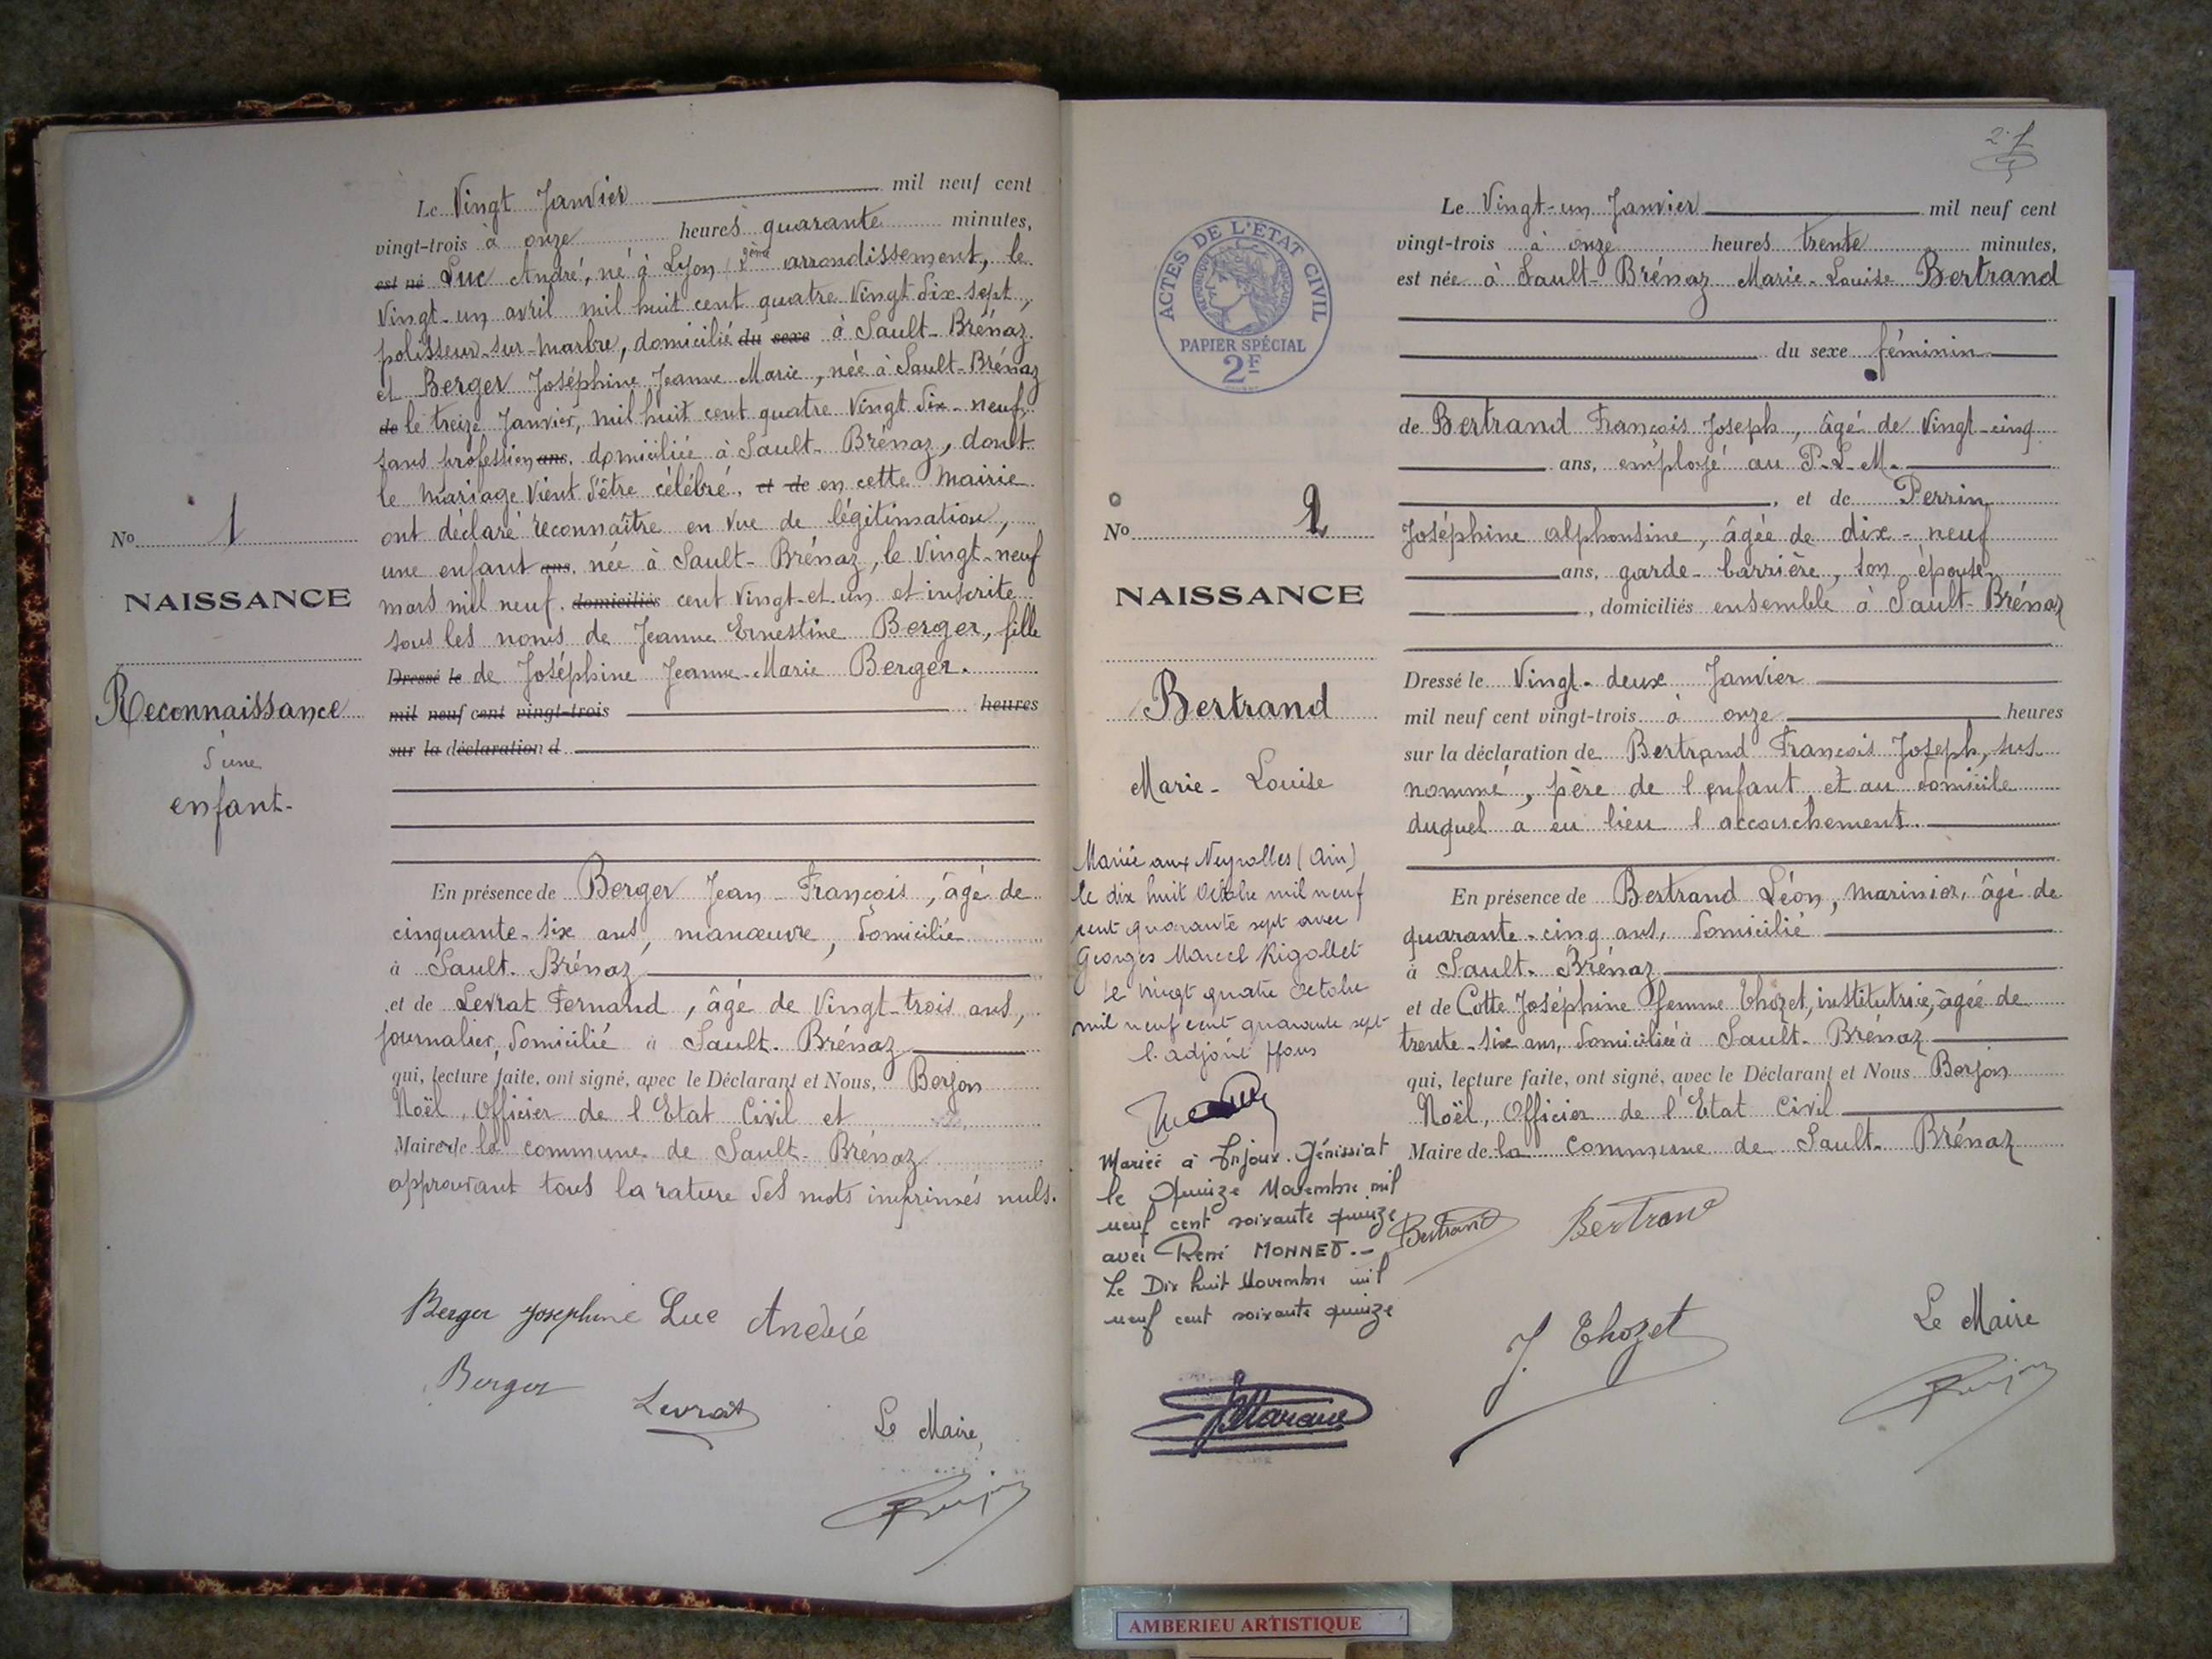 Le Vingt Janvier mil neuf cent
vingt-trois à onze heures quarante minutes,
est né Luc André, né à Lyon, arrondissement, le
Vingt-un avril mil huit cent quatre vingt dix sept,
polisseur-sur-marbre, domicilié du sexe à Sault-Brénaz
et Berger Joséphine Jeanne Marie, née à Sault-Brénaz
de le treize Janvier, mil huit cent quatre vingt dix-neuf,
sans profession ans, domiciliée à Sault-Brénaz, dont
le mariage vient d'être célébré, et de en cette Mairie
ont déclaré reconnaître en vue de légitimation,
une enfant ans, née à Sault-Brénaz, le vingt-neuf
mars mil neuf. domiciliés cent vingt-et-un et inscrite
sous les noms de Jeanne Ernestine Berger, fille
Dressé le de Joséphine Jeanne-Marie Berger.
mil neuf cent vingt-trois heures
sur la déclaration d
En présence de Berger Jean-François, âgé de
cinquante-six ans, manœuvre, domicilié
à Sault-Brénaz
et de Levrat Fernand, âgé de Vingt-trois ans,
journalier, domicilié à Sault-Brénaz
qui, lecture faite, ont signé, avec le Déclarant et Nous, Berjon
Noël, Officier de l'Etat Civil et
Maire de la commune de Sault-Brénaz
approuvant tous la rature des mots imprimés nuls.
Berger Josephine Luc André
Berger
Levrat
Le Maire,
No 1
NAISSANCE
Reconnaissance
d'une
enfant-
2
ACTES DE L'ETAT CIVIL
REPUBLIQUE FRANÇAISE
PAPIER SPÉCIAL
2F
No 2
NAISSANCE
Bertrand
Marie-Louise
Mariée aux Neyrolles (Ain)
le dix huit Octobre mil neuf
cent quarante sept avec
Georges Marcel Rigollet
Le vingt quatre Octobre
mil neuf cent quarante sept
l'adjoint
Mariée à Injoux-Génissiat
le Quinze Novembre mil
neuf cent soixante quinze
avec René MONNET.-
Le Dix huit Novembre mil
neuf cent soixante quinze
Le Vingt-un Janvier mil neuf cent
vingt-trois à onze heures trente minutes,
est née à Sault-Brénaz Marie-Louise Bertrand
du sexe féminin
de Bertrand François Joseph, âgé de Vingt-cinq
ans, employé au P-L-M.
, et de Perrin
Joséphine alphonsine, âgée de dix-neuf
ans, garde-barrière, son épouse
, domiciliés ensemble à Sault-Brénaz
Dressé le Vingt-deux Janvier
mil neuf cent vingt-trois à onze heures
sur la déclaration de Bertrand François Joseph, sus
nommé, père de l'enfant et au domicile
duquel a eu lieu l'accouchement.
En présence de Bertrand Léon, marinier, âgé de
quarante-cinq ans, domicilié
à Sault-Brénaz
et de Cotte Joséphine femme Thozet, institutrice, âgée de
trente-six ans, domiciliée à Sault-Brénaz
qui, lecture faite, ont signé, avec le Déclarant et Nous Berjon
Noël, Officier de l'Etat Civil
Maire de la commune de Sault-Brénaz
Bertrand Bertrand
J. Thozet
Le Maire
AMBERIEU ARTISTIQUE